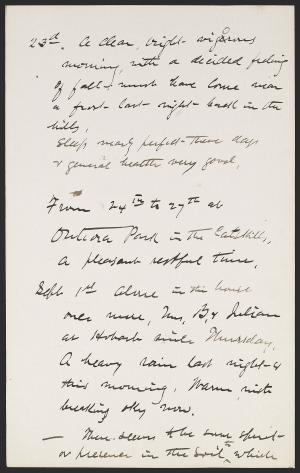 23d. A clear, bright - vigorous
morning, with a decided feeling
of fall - must have come near
a frost - last - night - back in the
hills.
Sleep nearly perfect - these days
& general health very good.
From 24th to 27th at
Onteora Park in the Catskills,
a pleasant restful time.
Sept 1st Alone in the house
over here, Mrs. B, & Julian
at Hobart since Thursday.
A heavy rain last night - &
this morning. Warm, with
breaking sky now.
— There seems to be some spirit -
or presence in the Soil which